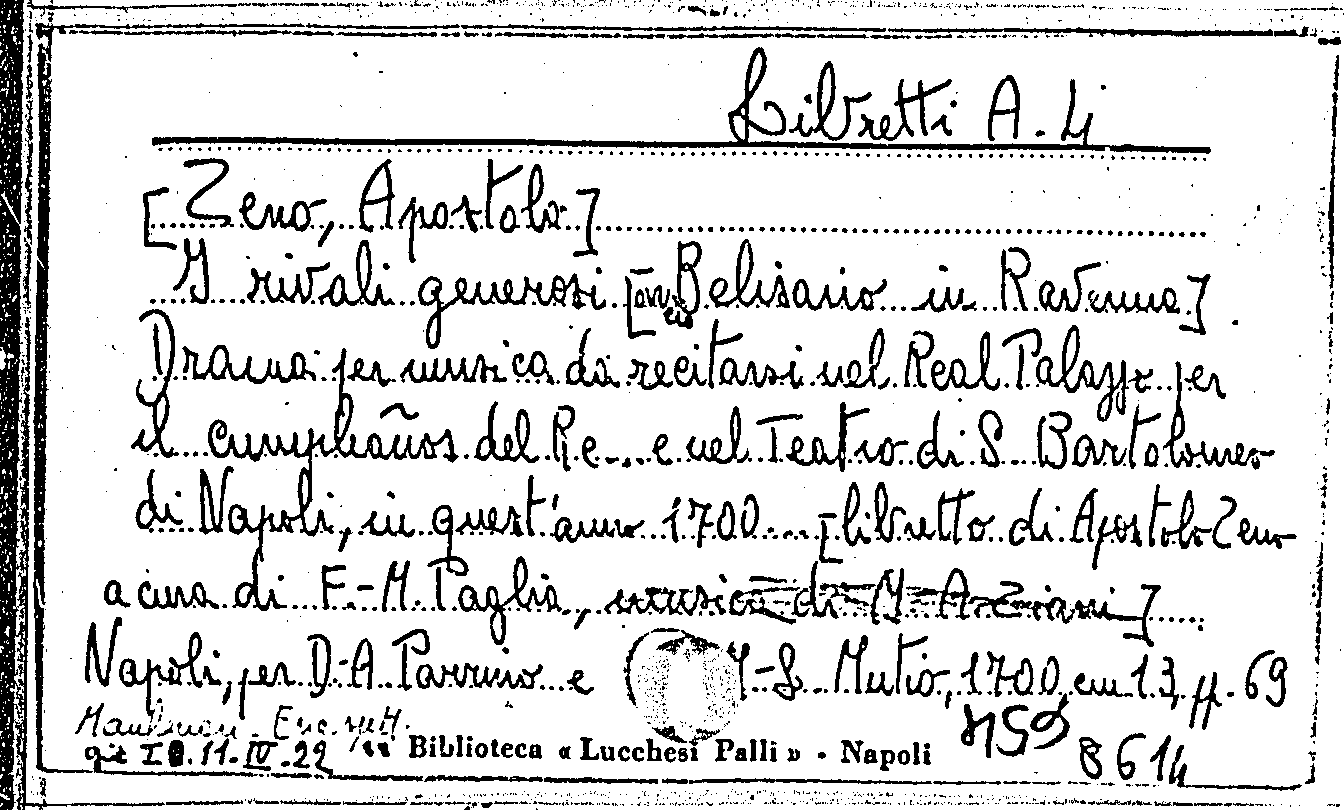 Libretti A. 4
[Zeno, Apostolo]
I rivali generosi [ovvero Belisario in Ravenna]
Drama per musica da recitarsi nel Real Palazzo per
il cumpleaños del Re... e nel Teatro di S. Bartolomeo
di Napoli, in quest'anno 1700... [libretto di Apostolo Zeno
a cura di F.-M. Paglia, musica di M. A. Ziani]
Napoli, per D.-A. Parrino e M.-L. Mutio, 1700, cm 13, pp. 69
459
11-IV-22
Biblioteca « Lucchesi Palli » - Napoli
8614